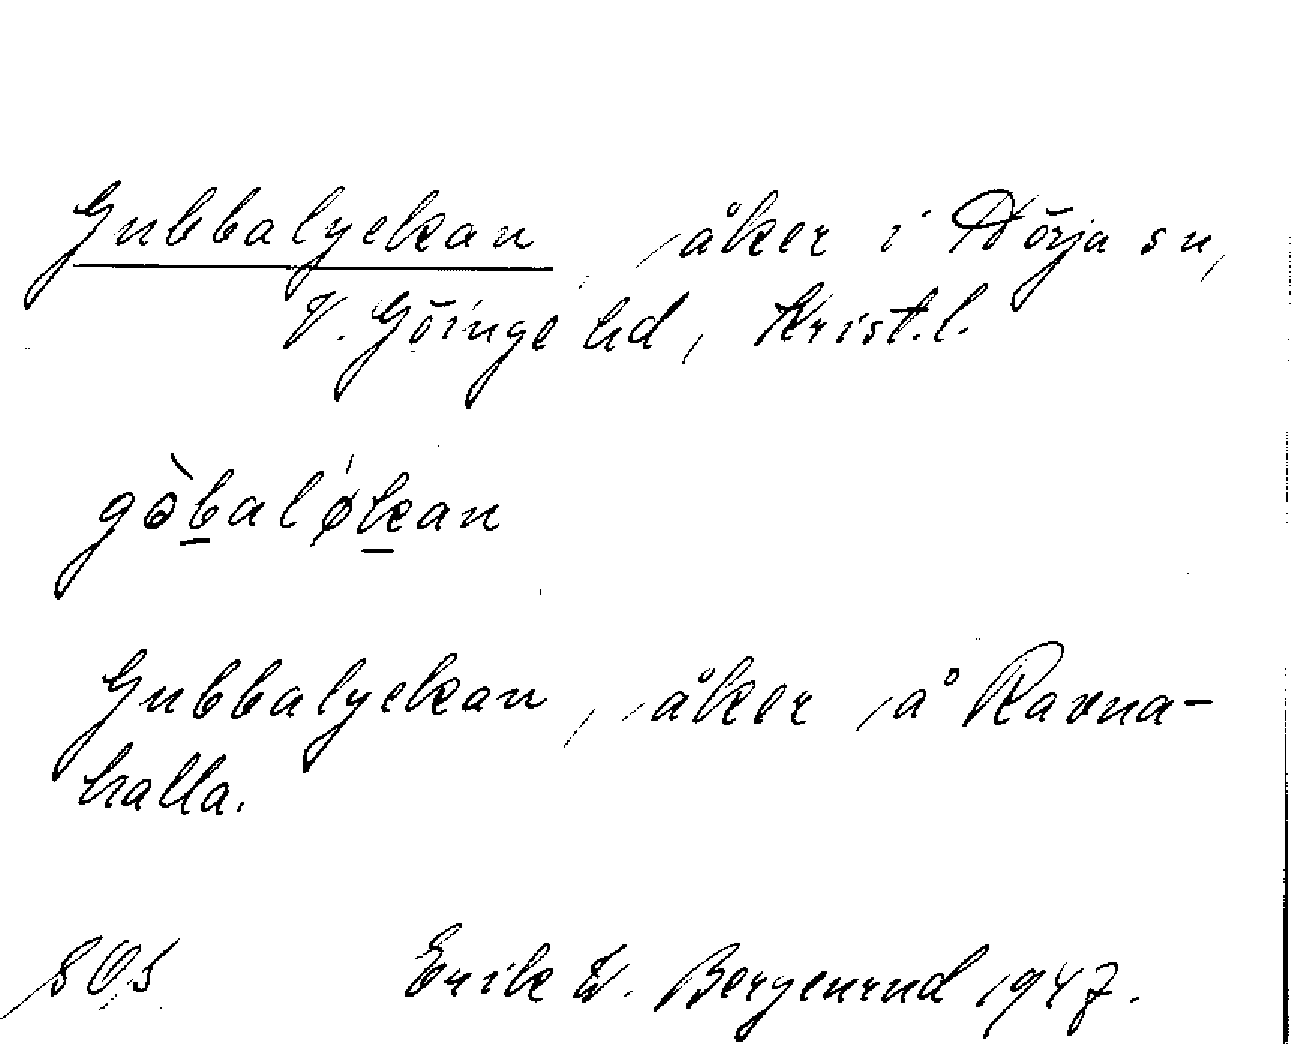 Gubbalyckan, åker i Nörja sn,
V. Göinge hd, Krist.l.
gòbaløkan
Gubbalyckan, åker å Ravna-
halla.
805 Erik W. Bergenrud 1947.